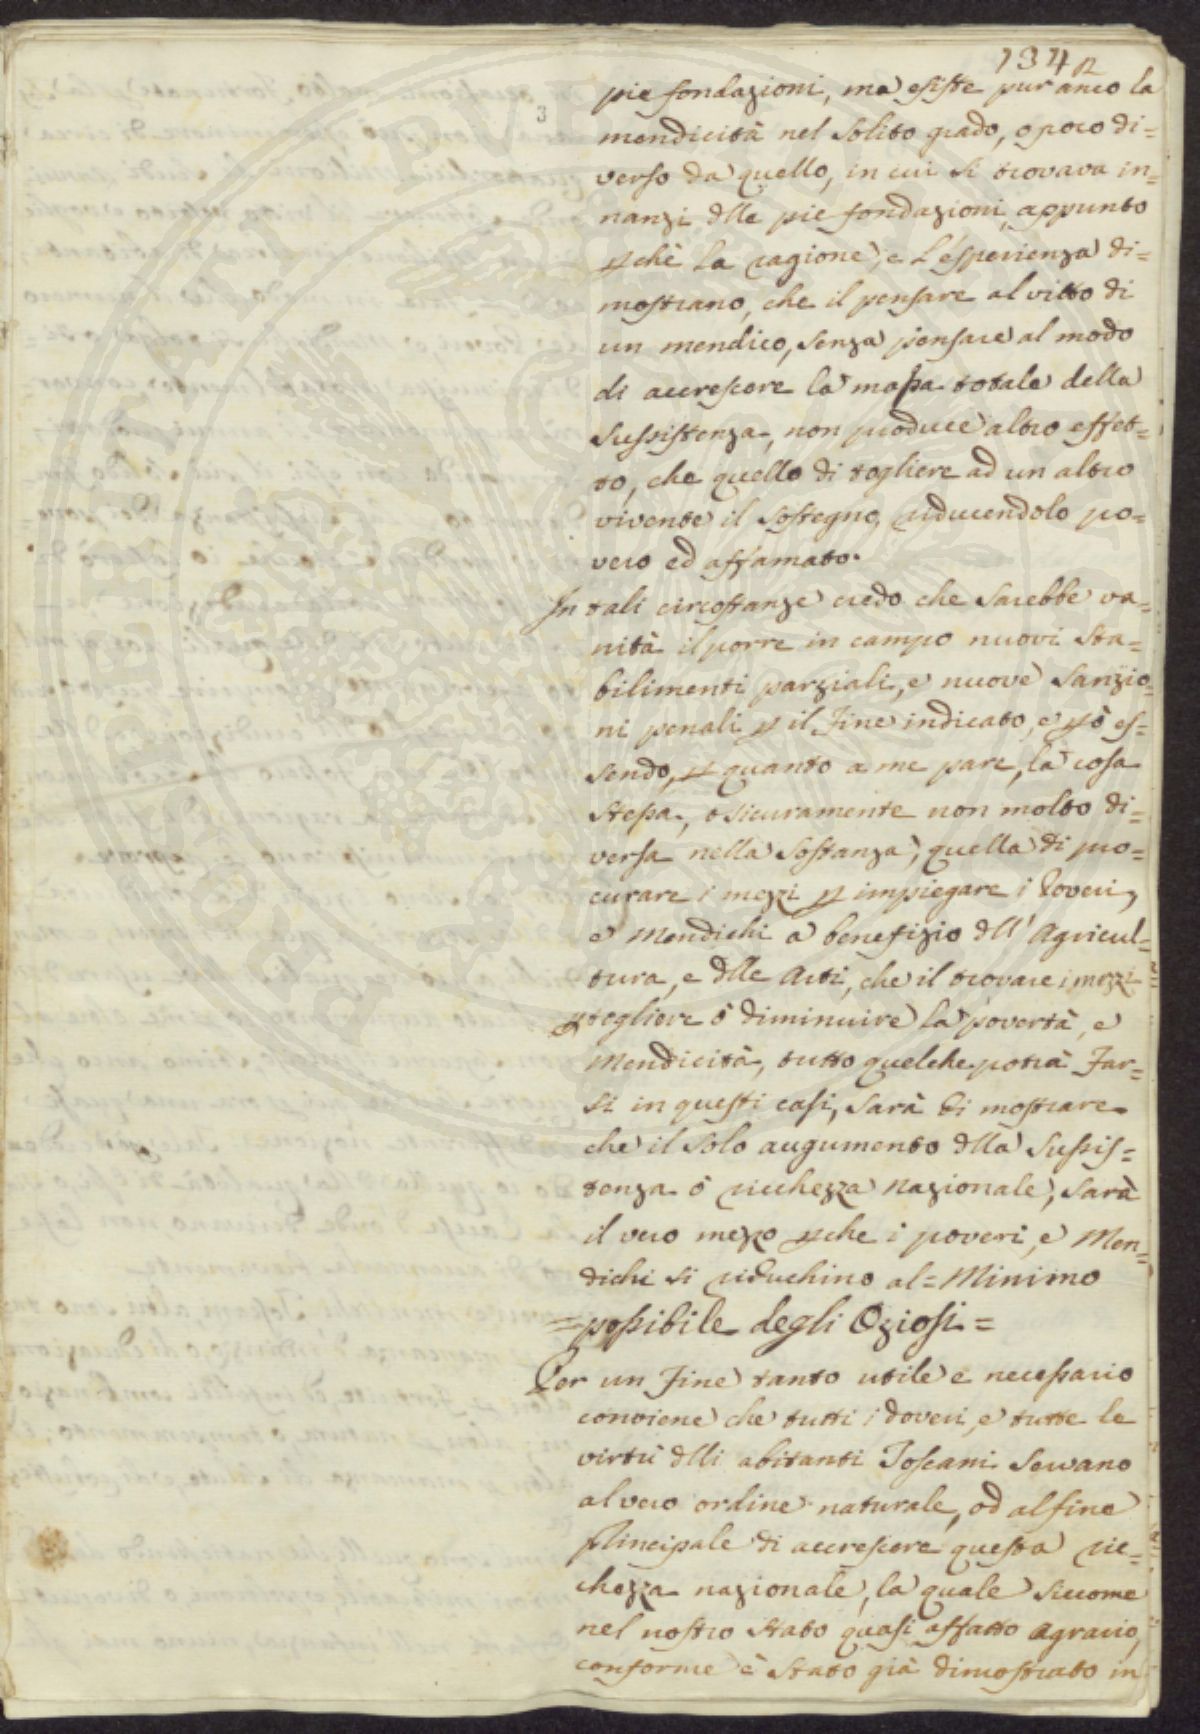 134
3
pie fondazioni, ma esiste pur anco la
mendicità nel solito grado, o poco di=
verso da quello, in cui si trovava in=
nanzi dlle pie fondazioni, appunto
pchè la ragione, e l'esperienza di=
mostrano, che il pensare al vitto di
un mendico, senza pensare al modo
di accrescere la massa totale della
sussistenza, non produce altro effet=
to, che quello di togliere ad un altro
vivente il sostegno, riducendolo po=
vero ed affamato.
In tali circostanze credo che sarebbe va=
nità il porre in campo nuovi sta=
bilimenti parziali, e nuove sanzio=
ni penali p il fine indicato, e pò es=
sendo, p quanto a me pare, la cosa
stessa, o sicuramente non molto di=
versa nella sostanza, quella di pro=
curare i mezzi p impiegare i Poveri,
e Mendichi a benefizio dll' Agricul=
tura, e dlle Arti, che il trovare i mezzi
p togliere ò diminuire la povertà, e
Mendicità, tutto quelche potrà far=
si in questi casi, sarà di mostrare
che il solo augumento dlla sussis=
tenza ò ricchezza nazionale, sarà
il vero mezzo pche i poveri, e Men=
dichi si riduchino al = Minimo
= possibile degli Oziosi =
Per un fine tanto utile e necessario
conviene che tutti i doveri, e tutte le
virtù dlli abitanti Toscani servano
al vero ordine naturale, ed al fine
Principale di accrescere questa ric=
chezza nazionale, la quale siccome
nel nostro stato quasi affatto agrario,
conforme è stato già dimostrato in